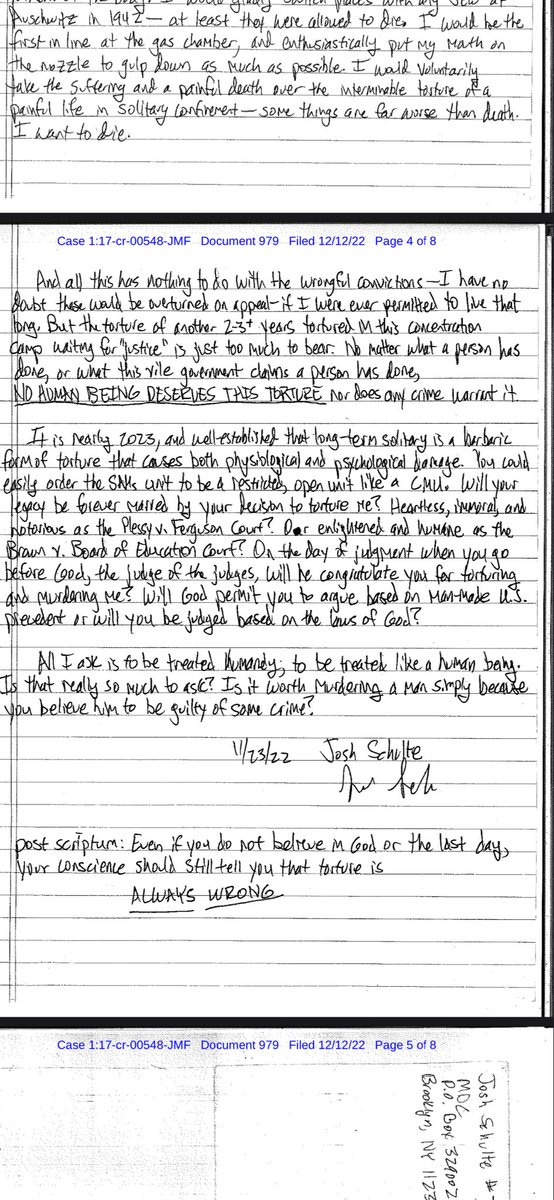 Auschwitz in 1942 — at least they were allowed to die. I would be the
first in line at the gas chamber, and enthusiastically put my math on
the nozzle to gulp down as much as possible. I would voluntarily
take the suffering and a painful death over the interminable torture of a
painful life in solitary confinement — some things are far worse than death.
I want to die.
Case 1:17-cr-00548-JMF Document 979 Filed 12/12/22 Page 4 of 8
And all this has nothing to do with the wrongful convictions — I have no
doubt these would be overturned on appeal — if I were ever permitted to live that
long. But the torture of another 2-3+ years tortured in this concentration
camp waiting for "justice" is just too much to bear. No matter what a person has
done, or what this vile government claims a person has done,
NO HUMAN BEING DESERVES THIS TORTURE nor does any crime warrant it.
It is nearly 2023, and well-established that long-term solitary is a barbaric
form of torture that causes both physiological and psychological damage. You could
easily order the SAMs unit to be a restricted, open unit like a CMU. Will your
legacy be forever marred by your decision to torture me? Heartless, immoral, and
notorious as the Plessy v. Ferguson Court? Or enlightened and humane as the
Brown v. Board of Education Court? On the day of judgment when you go
before God, the judge of the judges, will he congratulate you for torturing
and murdering me? Will God permit you to argue based on man-made U.S.
precedent or will you be judged based on the laws of God?
All I ask is to be treated humanely; to be treated like a human being.
Is that really so much to ask? Is it worth murdering a man simply because
you believe him to be guilty of some crime?
11/23/22 Josh Schulte
post scriptum: Even if you do not believe in God or the last day,
your conscience should still tell you that torture is
ALWAYS WRONG
Case 1:17-cr-00548-JMF Document 979 Filed 12/12/22 Page 5 of 8
Josh Schulte #
MDC
P.O. Box 329002
Brooklyn, NY 112